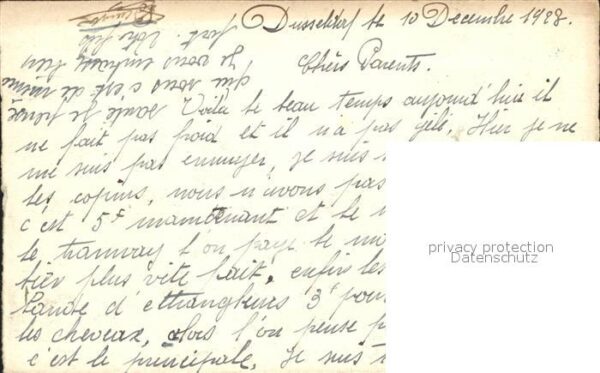 Dusseldorf le 10 Decembre 1928.
Chers Parents.
Voila le beau temps aujourd'hui il
ne fait pas froid et il n'a pas gelé. Hier je ne
me suis pas ennuyer, je suis
les copins, nous n'avons pas
c'est 5f maintenant et le
le tramway l'on paye le
bien plus vite fait, enfin les
bande d'ettrangkers 3f pour
les cheveux, alors l'on pense
c'est le principale, Je suis
je vous embrasse bien
fort. Votre fils
privacy protection
Datenschutz